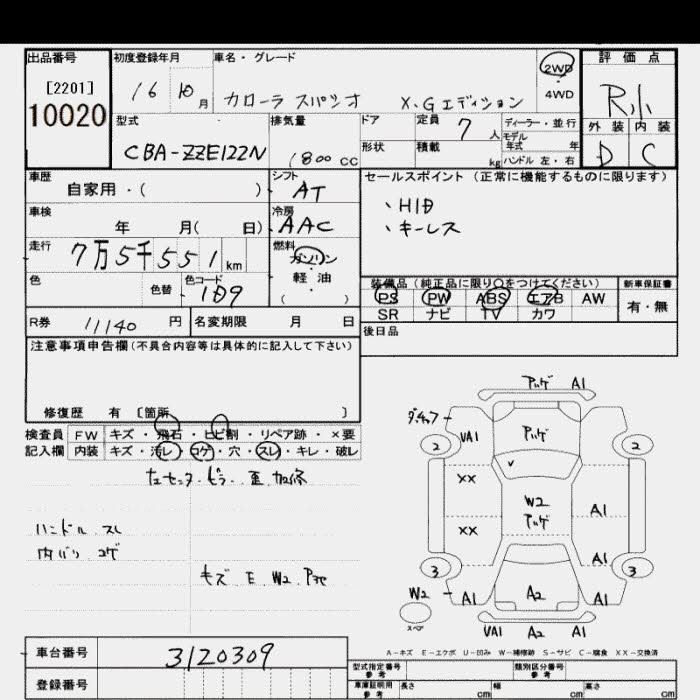 出品番号
[2201]
10020
初度登録年月
16 10 月
車名・グレード
カローラ スパシオ X.Gエディション
2WD
4WD
評価点
R小
外装 内装
D C
型式
CBA-ZZE122N
排気量
1800 CC
ドア
形状
定員 7 人
積載 kg
ディーラー・並行
モデル年式 年
ハンドル 左・右
車歴
自家用・( )
シフト
AT
車検
年 月( 日)
冷房
AAC
走行
7万5千551 km
燃料
ガソリン
軽油
( )
色
色替
色コード
1D9
R券 11140 円
名変期限 月 日
セールスポイント(正常に機能するものに限ります)
、HID
、キーレス
装備品(純正品に限り○をつけてください)
PS PW ABS エアB AW
SR ナビ TV カワ
新車保証書
有・無
後日品
注意事項申告欄(不具合内容等は具体的に記入して下さい)
修復歴 有 〔箇所 〕
検査員記入欄
FW キズ・飛石・ヒビ割・リペア跡・×要
内装 キズ・汚レ・コゲ・穴・スレ・キレ・破レ
ハンドル スレ
内バリ コゲ
キズ E W2
アルゲ A1
VA1
アルゲ
2 2
XX
W2
アルゲ
A1
XX
A1
3 3
W2
スペア
A1 A2 A1
VA1 A2 A1
A-キズ E-エクボ U-凹み W-補修跡 S-サビ C-腐食 XX-交換済
車台番号 3120309
登録番号
型式指定番号 参考
類別区分番号 参考
車庫証明用 参考
長さ cm 幅 cm 高さ cm